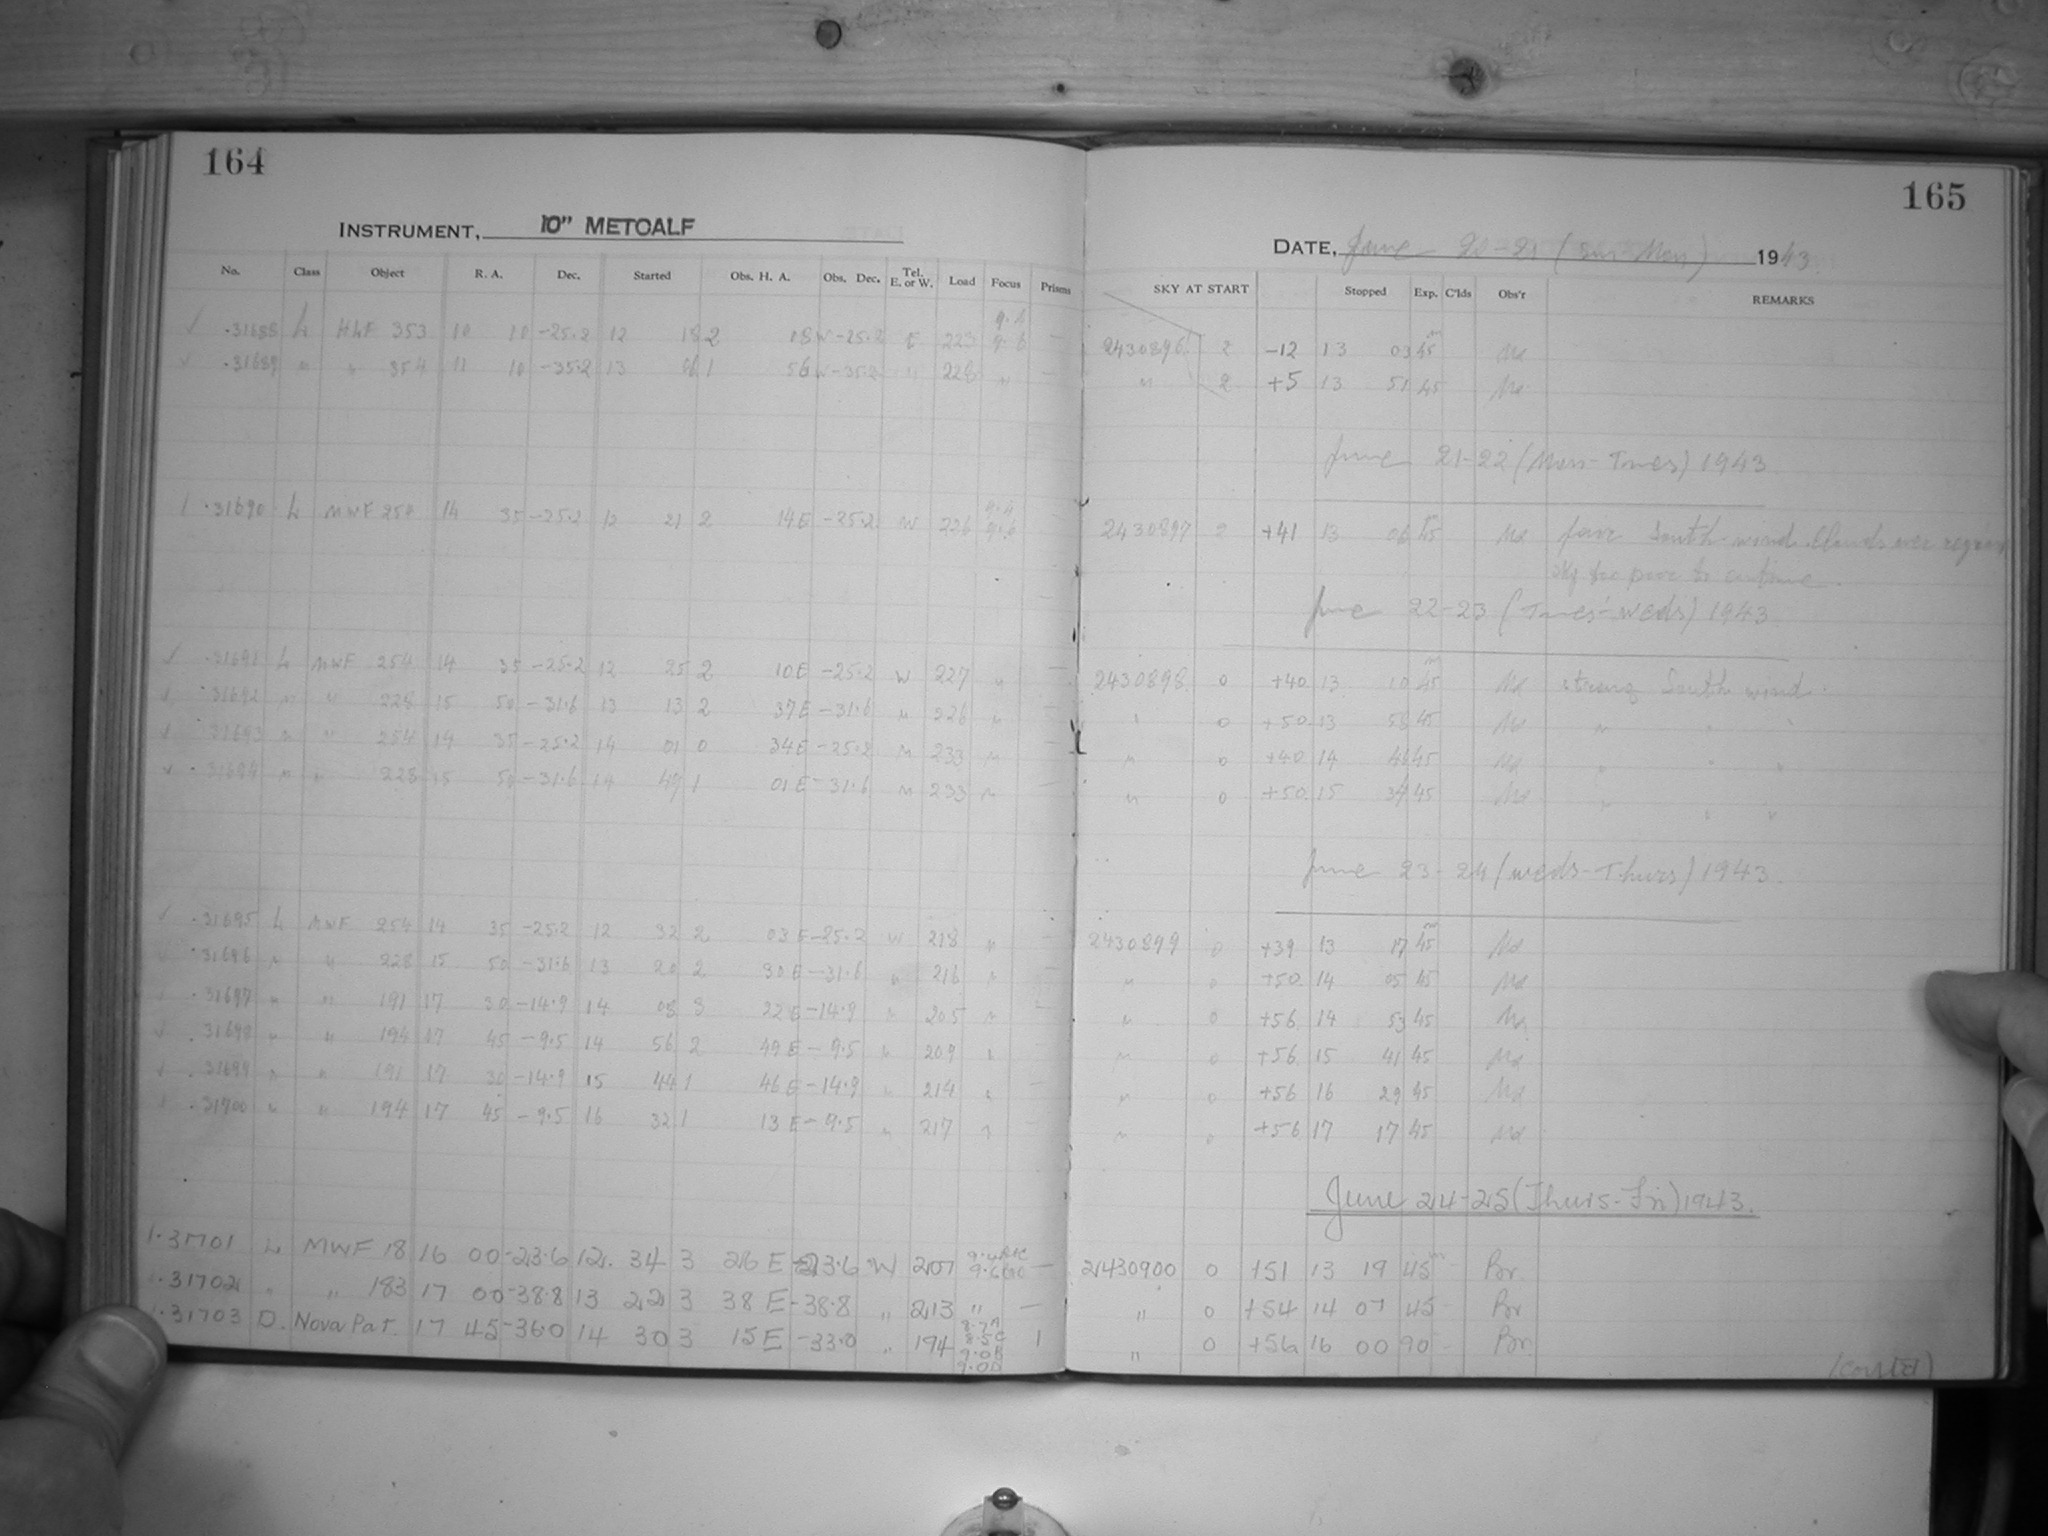 164
INSTRUMENT, 10" METCALF
No. Class Object R. A. Dec. Started Obs. H. A. Obs. Dec. Tel. E. or W. Load Focus Prisms
31688 L 353 10 10 -25.2 12 18 2 08 W -25.2 E 223 9.4 9.6 —
31689 " " 354 11 10 -35.2 13 06 1 56 W -35.2 " 228 " —
31690 L MWF 254 14 35 -25.2 12 21 2 14 E -25.2 W 226 9.4 9.6
31691 L MWF 254 14 35 -25.2 12 25 2 10 E -25.2 W 227 " —
31692 " " 228 15 50 -31.6 13 13 2 37 E -31.6 " 226 " —
31693 " " 254 14 35 -25.2 14 01 0 34 E -25.2 " 233 " —
31694 " " 228 15 50 -31.6 14 49 1 01 E -31.6 " 233 " —
31695 L MWF 254 14 35 -25.2 12 32 2 03 E -25.2 W 218 " —
31696 " " 228 15 50 -31.6 13 20 2 30 E -31.6 " 216 " —
31697 " " 191 17 30 -14.9 14 08 3 22 E -14.9 " 205 " —
31698 " " 194 17 45 -9.5 14 56 2 49 E -9.5 " 209 " —
31699 " " 191 17 30 -14.9 15 44 1 46 E -14.9 " 214 " —
31700 " " 194 17 45 -9.5 16 32 1 13 E -9.5 " 217 " —
31701 L MWF 18 16 00 -23.6 12 34 3 26 E -23.6 W 207 —
31702 " " 183 17 00 -38.8 13 22 3 38 E -38.8 " 213 " —
31703 D. Nova Pat. 17 45 -36.0 14 30 3 15 E -33.0 " 194 8.7A 8.5C 9.0B 9.0D 1
165
DATE, June 20-21 (Sun-Mon) 1943
SKY AT START Stopped Exp. C'lds Obs'r REMARKS
2430896 2 -12 13 03 45m Md
" 2 +5 13 51 45 Md
June 21-22 (Mon-Tues) 1943
2430897 2 +41 13 06 45m Md South wind. Clouds over region
Sky too poor to continue.
June 22-23 (Tues-Weds) 1943
2430898 0 +40 13 10 45m Md strong South wind.
" 0 +50 13 58 45 Md " " "
" 0 +40 14 46 45 Md " " "
" 0 +50 15 34 45 Md " " "
June 23-24 (Weds-Thurs) 1943
2430899 0 +39 13 17 45m Md
" 0 +50 14 05 45 Md
" 0 +56 14 53 45 Md
" 0 +56 15 41 45 Md
" 0 +56 16 29 45 Md
" 0 +56 17 17 45 Md
June 24-25 (Thurs-Fri) 1943.
2430900 0 +51 13 19 45m Br
" 0 +54 14 07 45 Br
" 0 +56 16 00 90 Br
(Contd)